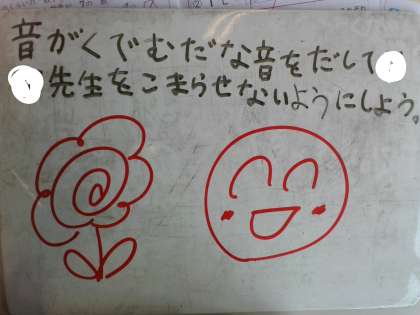 音がくでむだな音をだして
先生をこまらせないようにしよう。